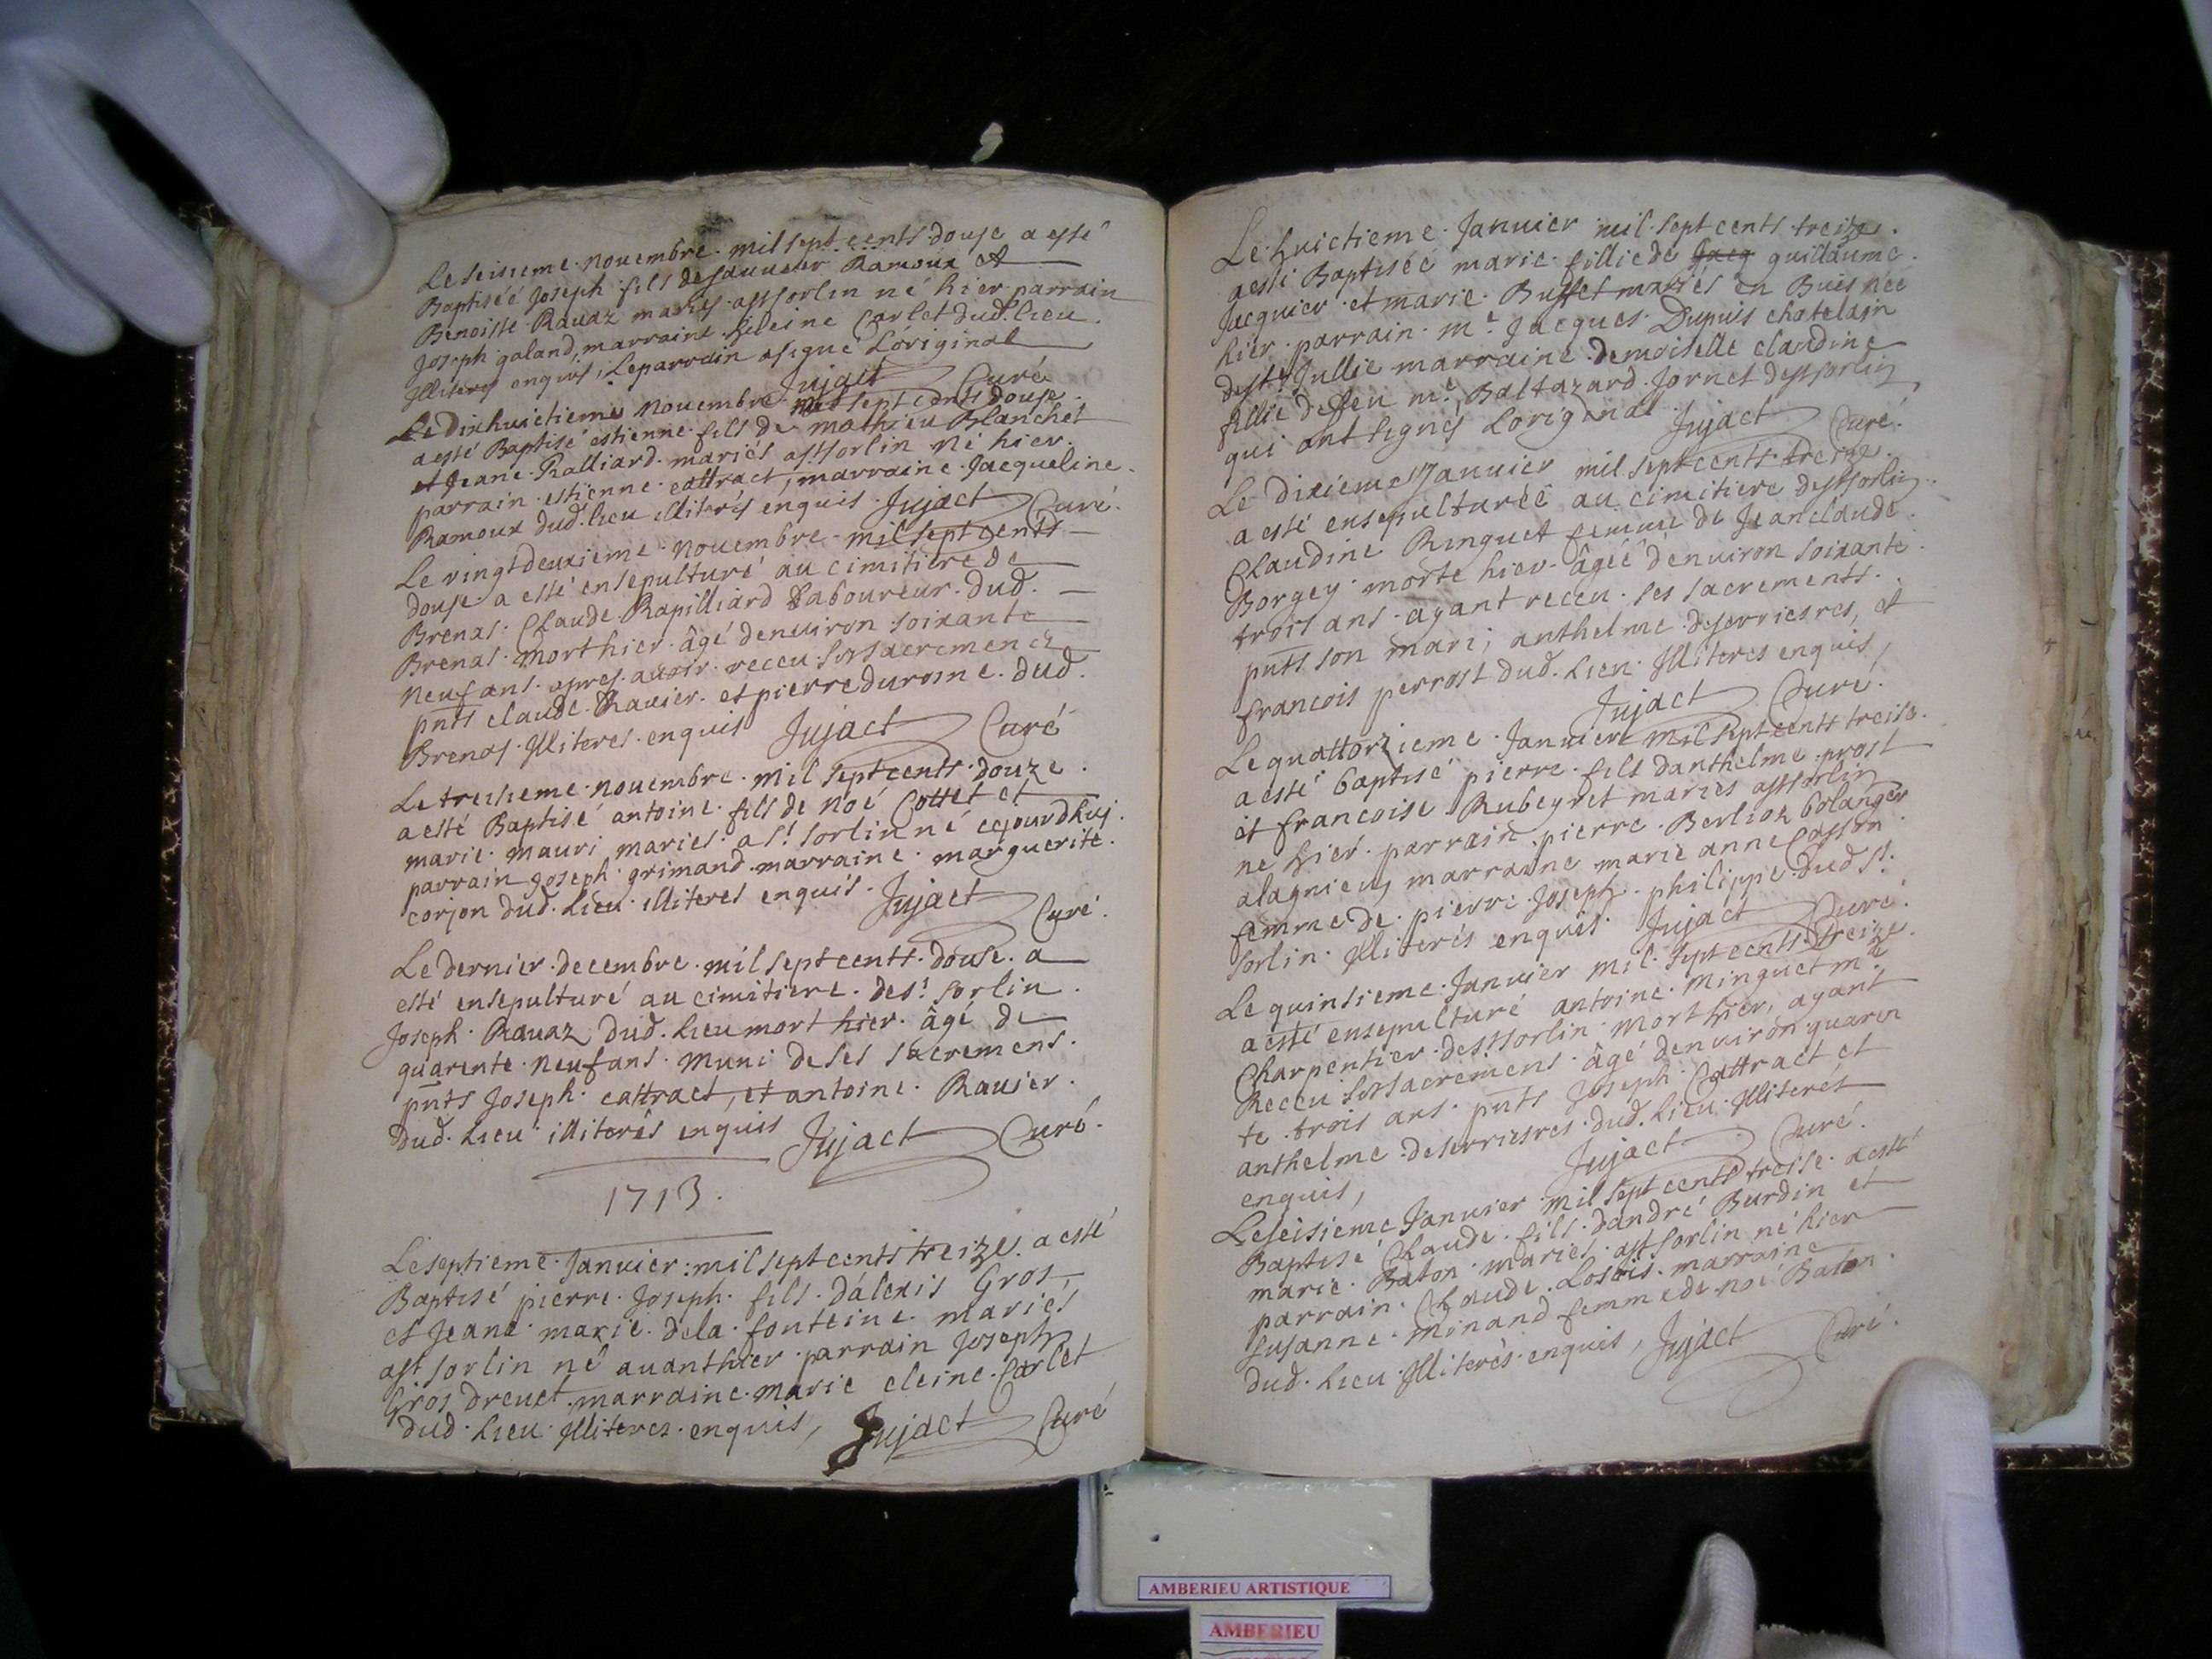 Le seisieme novembre mil sept cents douse a esté
Baptiséé Joseph fils de Ramoux et
Benoiste Ravaz mariés a st sorlin né hier parrain
Joseph galand, marraine heleine Carlet dud. lieu
Illiterés enquis, le parrain a signé L'original
Jujact Curé
Le Dixhuictieme novembre mil sept cents douse
a esté Baptisé estienne fils de mathieu Blanchet
et Jeane Ralliard mariés a st sorlin né hier
parrain estienne cattract, marraine Jacqueline
Ramoux dud. lieu illiterés enquis Jujact Curé.
Le vingt deuxieme novembre mil sept cents
douse a esté ensepulturé au cimitiere de
Brenas Claude Rapilliard Laboureur dud.
Brenas mort hier âgé denviron soixante
neuf ans apres avoir receu ses sacremens
pnts claude Ravier et pierre durosne dud.
Brenas Illiteres enquis Jujact Curé
Le tresieme novembre mil sept cents douze
a esté Baptisé antoine fils de noé Cottet et
marie mauri mariés a st sorlin né cejourdhuj
parrain Joseph grimand marraine marguerite
corjon dud. lieu illiteres enquis Jujact Curé.
Le dernier decembre mil sept cents douse a
esté ensepulturé au cimitiere de st sorlin
Joseph Ravaz dud. lieu mort hier âgé de
quarente neuf ans muni de ses sacremens
pnts Joseph cattract, et antoine Ravier
dud. lieu illiterés enquis Jujact Curé.
1713.
Le septieme Janvier mil sept cents treize a esté
Baptisé pierre Joseph fils dálexis Gros
et Jeane marie dela fonteine mariés
a st sorlin né avanthier parrain Joseph
Gros Drevet marraine marie eleine Carlet
dud lieu Illiteres enquis, Jujact Curé
Le huictieme Janvier mil sept cents treize
a esté Baptisée marie fillie de Jacq guillaume
Jacquier et marie Buffet mariés en Buis née
hier parrain me. Jacques Dupuis chatelain
de st. Jullie marraine demoiselle claudine
fillie de feu me. Baltazard Jornet de st sorlin
qui ont signés Loriginal Jujact Curé.
Le dixieme Janvier mil sept cents treize
a esté ensepulturéé au cimitiere de st sorlin
Claudine Ringuet femme de Jeanclaude
Borgey morte hier âgéé denviron soixante
trois ans ayant receu ses sacrements
pnts son mari, anthelme deserriesres, et
francois perrost dud. lieu Illiteres enquis,
Jujact Curé.
Le quattorzieme Janvier mil sept cents treise
a esté baptisé pierre fils danthelme prost
et francoise Rubeyret mariés a st sorlin
ne hier parrain pierre Berlioz bolanger
a lagnieu, marraine marie anne Casson
femme de pierre Joseph philippe dud st.
sorlin Illiterés enquis Jujact Curé.
Le quinsieme Janvier mil sept cents treize
a esté ensepulturé antoine minguet me
Charpentier de st sorlin mort hier, ayant
Receu ses sacremens âgé denviron quaren
te trois ans pnts Joseph Cattract et
anthelme deserriesres dud. lieu Illiterés
enquis, Jujact Curé.
Le seisieme Janvier mil sept cents treise a esté
Baptisé Claude fils dandré Burdin et
marie Baton mariés a st sorlin né hier
parrain Claude marraine
Susanne minand femme de noé Baton
dud. lieu Illiterés enquis, Jujact Curé.
AMBERIEU ARTISTIQUE
AMBERIEU